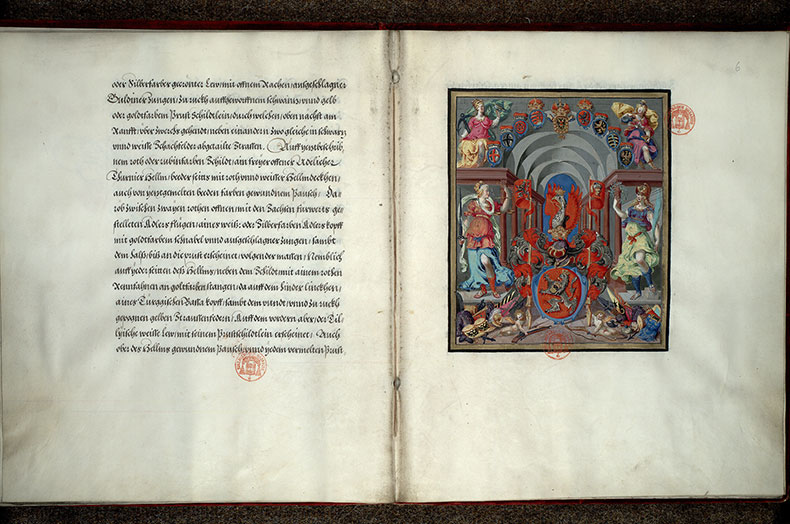 oder Silberfarber gecrönter Lew, mit offnem Rachen, ausgeschlagner
Guldiner Zungen, zu ruckh aufgeworffnem schwantz, vnnd gelb
oder goldtfarbem Prust Schildtlein, durch welchen, oben nachst am
Ranfft, vber zwerchs gehendt neben einandern zwo gleiche in schwarz
vnnd weisse Schachfelder abgetailte Strassen. Auff yeztbeschrib,
nem roth oder rubinfarben Schildt, ain freyer offener Adelicher
Thurnier Hellm, beder seitts mit roth vnnd weisser Hellmdeckhen,
auch von yeztgemelten beeden farben gewundnem Pausch, Da,
rob zwischen zwayen rothen offnen, mit den Sachsen fürwerts ge,
stelleten Adlers flügen, aines weiß, oder Silberfarben Adlers kopff
mit goldtfarbem schnabel vnnd ausgeschlagner Zungen, sambt
dem halß, biß an die prust erscheinet, volgender massen, Nemblich
auff yeder seitten deß Hellms, neben dem Schildt mit ainem rothen
Rennfahnen an goltfarben stangen, da auff dem hinder linckhen,
aines Türggischen Bassa kopff, sambt dem pundt, vnnd zu ruckh
gebognen gelben Straussenfedern, Auff dem vordern aber, der
weisse Lew, mit seinem Prustschildtlein erscheinet, Auch
ober des Hellms gewundnem Pausch, vnnd yedem vermelten Prust
6